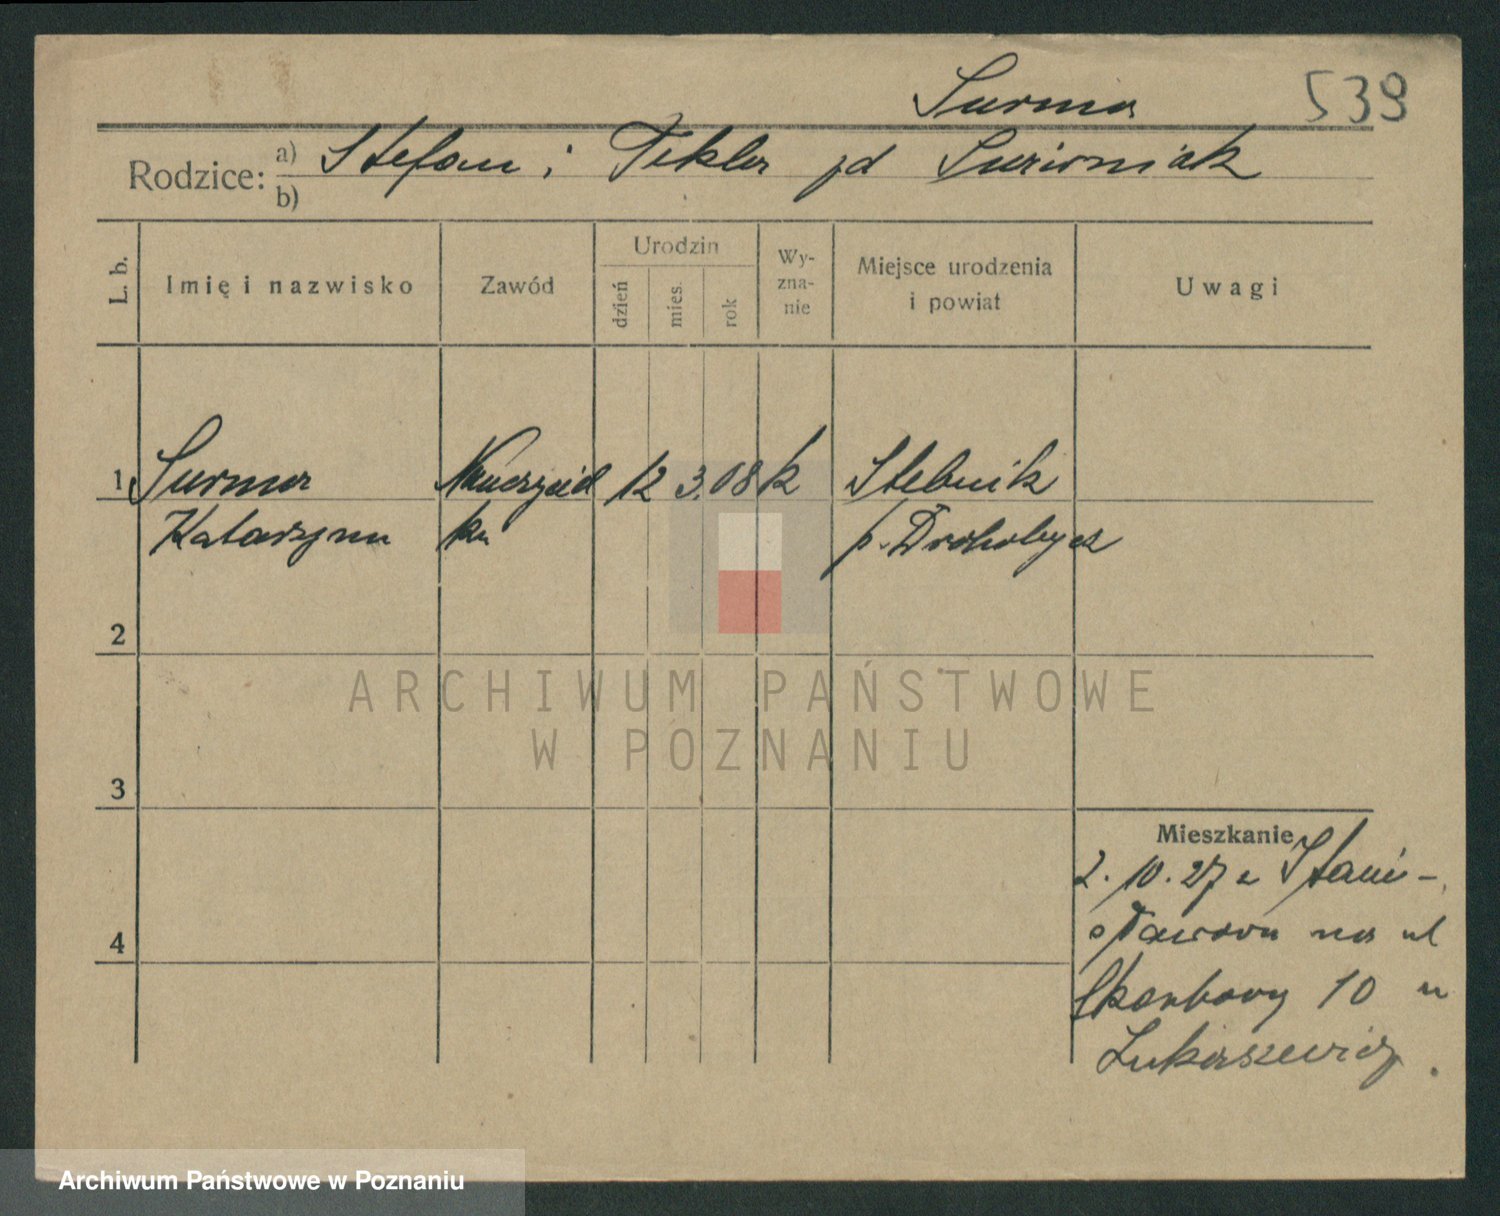 Surma 539
Rodzice: a) Stefan i Tekla zd
b)
L. b. Imię i nazwisko Zawód Urodzin dzień mies. rok Wy-zna-nie Miejsce urodzenia i powiat Uwagi
1 Surma Nauczyciel 12 3. 08 k Stebnik
Katarzyna ka p. Drohobycz
2
ARCHIWUM PAŃSTWOWE
W POZNANIU
3
Mieszkanie
2. 10. 27 z Stani-
sławowa na ul
Skarbowy 10 u
Łukaszewicz.
4
Archiwum Państwowe w Poznaniu